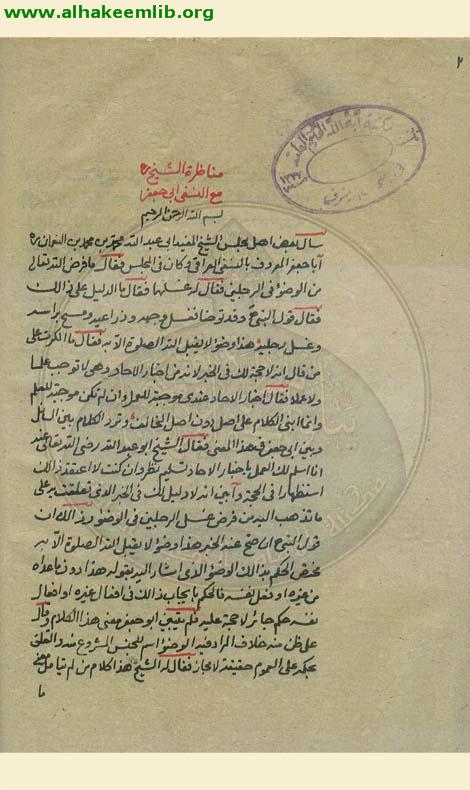 www.alhakeemlib.org
٢
مناظرة الشيخ ره
مع النسفى ابى جعفر
بسم الله الرحمن الرحيم
سال بعض اهل مجلس الشيخ المفيد ابى عبد الله محمد بن محمد بن النعمان ره
أبا جعفر المعروف بالنسفى العراقى وكان فى المجلس فقال ما فرض الله تعالى
من الوضوء فى الرجلين فقال له غسلهما فقال ما الدليل على ذالك
فقال قول النبى وقد توضأ فغسل وجهه وذراعيه ومسح براسه
وغسل رجليه هذا وضوء لا يقبل الله الصلوة الا به فقال ما انكرت على
من قال انه لا حجة لك فى الخبر لانه من اخبار الاحاد وهى لا توجب علما
ولا عملا فقال اخبار الاحاد عندى موجبة للعمل وان لم تكن موجبة للعلم
وانما ابنى الكلام على اصلى دون اصل المخالف وتردد الكلام بين السائل
وبين ابى جعفر فى هذا المعنى فقال الشيخ ابو عبد الله رضى الله تعالى عنه
انا اسلم لك العمل باخبار الاحاد تسليم نظر وان كنت لا اعتقد ذالك
استظهارا فى الحجة وأبين انه لا دليل لك فى الخبر الذى تعلقت به على
ما تذهب اليه من فرض غسل الرجلين فى الوضوء وذالك ان
قول النبى ان صح عنه الخبر هذا وضوء لا يقبل الله الصلوة الا به
مختص الحكم بذالك الوضوء الذى اشار اليه بقوله هذا دون ما عداه
من غيره او فعل نفسه فالحكم بايجاب ذالك فى افعال غيره او افعال
نفسه حكم جائر لا حجة عليه فلم يتبين ابو جعفر معنى هذا الكلام وقال
على ظن منه خلاف المراد فيه الوضوء اسم للجنس المشروع منه والتعلق
بحكمه على العموم حقيقة لا مجاز فقال له الشيخ هذا كلام من لم يتامل معنى
ما